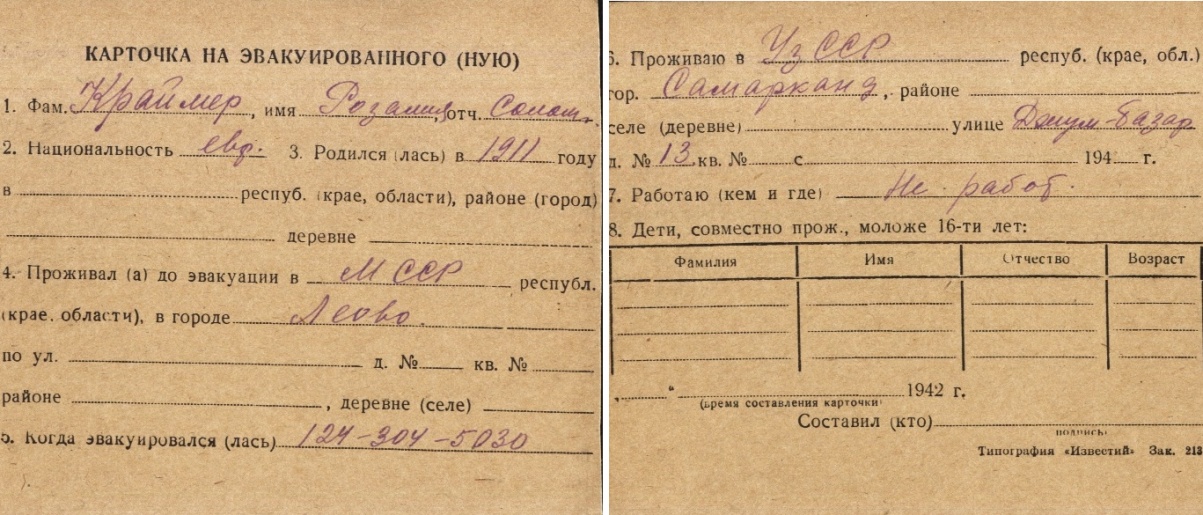 КАРТОЧКА НА ЭВАКУИРОВАННОГО (НУЮ)
1. Фам. Краймер, имя Розалия, отч. Солом.
2. Национальность евр. 3. Родился (лась) в 1911 году
в респуб. (крае, области), районе (город)
деревне
4. Проживал (а) до эвакуации в МССР республ.
(крае, области), в городе Леово.
по ул. д. № кв. №
районе , деревне (селе)
5. Когда эвакуировался (лась) 124-304-5030
6. Проживаю в УзССР респуб. (крае, обл.)
гор. Самарканд, районе
селе (деревне) улице Джум-базар
д. № 13 кв. № с 194 г.
7. Работаю (кем и где) Не работ.
8. Дети, совместно прож., моложе 16-ти лет:
Фамилия Имя Отчество Возраст
" 1942 г.
(время составления карточки)
Составил (кто)
подпись
Типография «Известий» Зак. 213